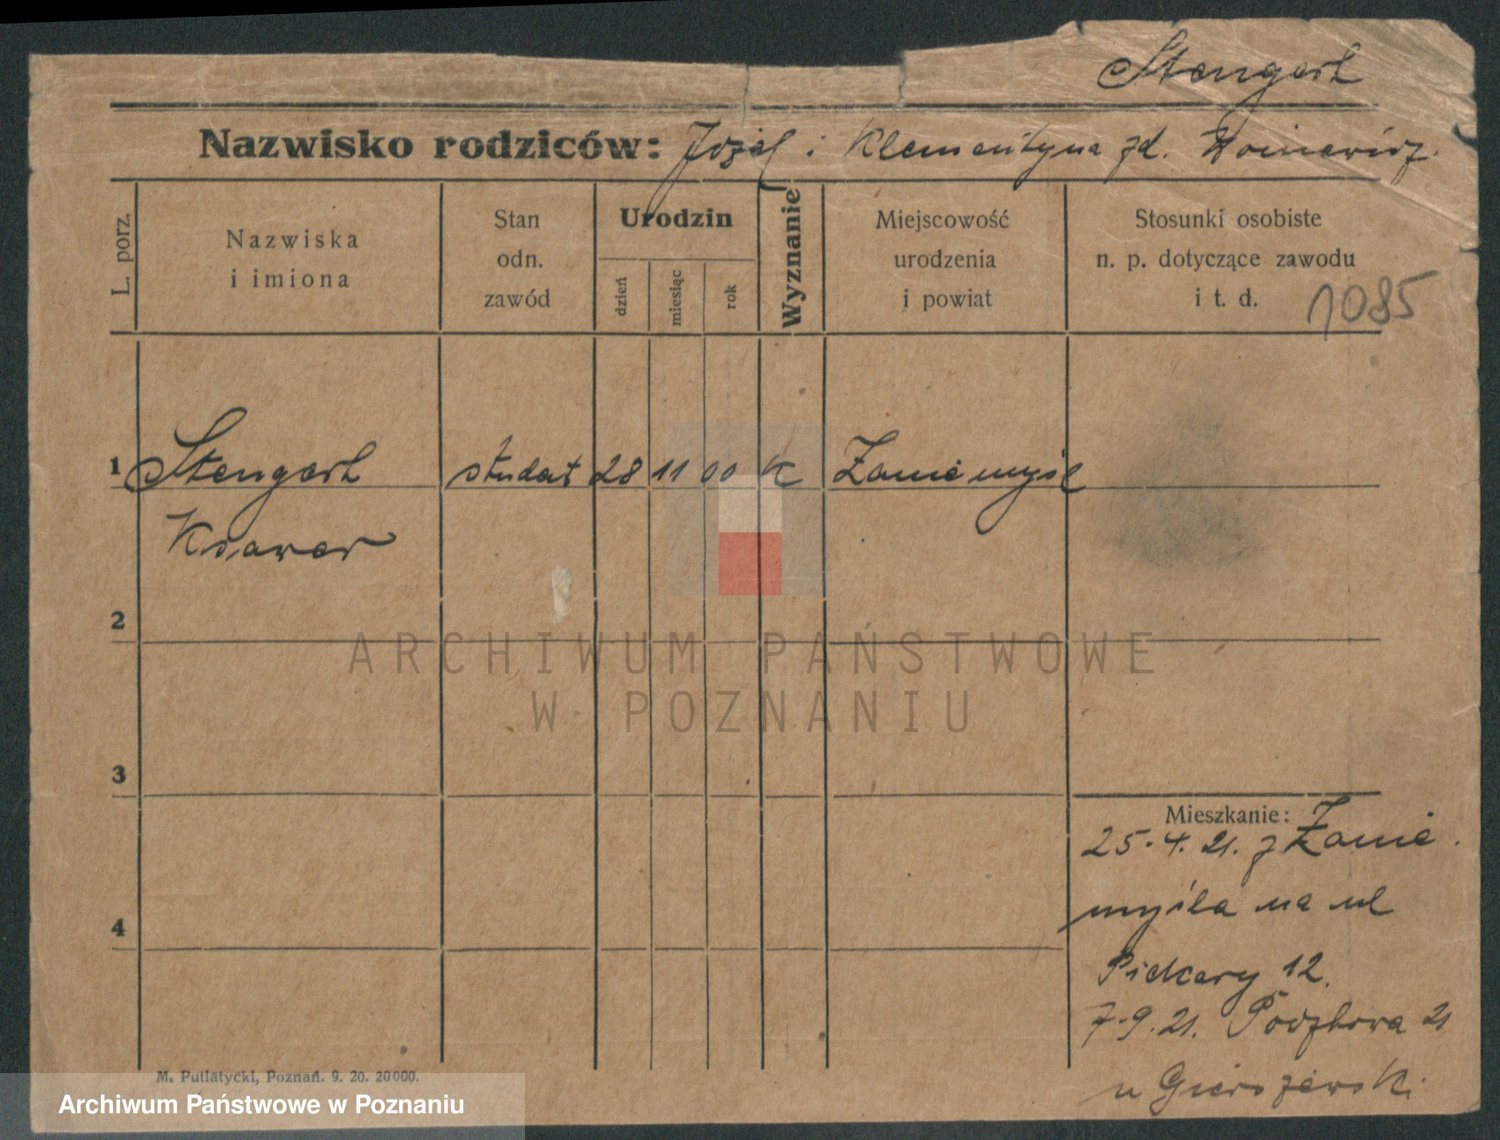 Stengert
Nazwisko rodziców: Józef i Klementyna zd.
L. porz.
Nazwiska
i imiona
Stan
odn.
zawód
Urodzin
dzień
miesiąc
rok
Wyznanie
Miejscowość
urodzenia
i powiat
Stosunki osobiste
n. p. dotyczące zawodu
i t. d.
1085
1 Stengert student 28 11 00 K Zaniemyśl
Ksawer
2
ARCHIWUM PAŃSTWOWE
W POZNANIU
3
Mieszkanie:
25.4.21. z Zanie
myśla na ul
4
Piekary 12.
7.9.21. 21
u Gierszewski
M. Putiatycki, Poznań. 9. 20. 20000.
Archiwum Państwowe w Poznaniu